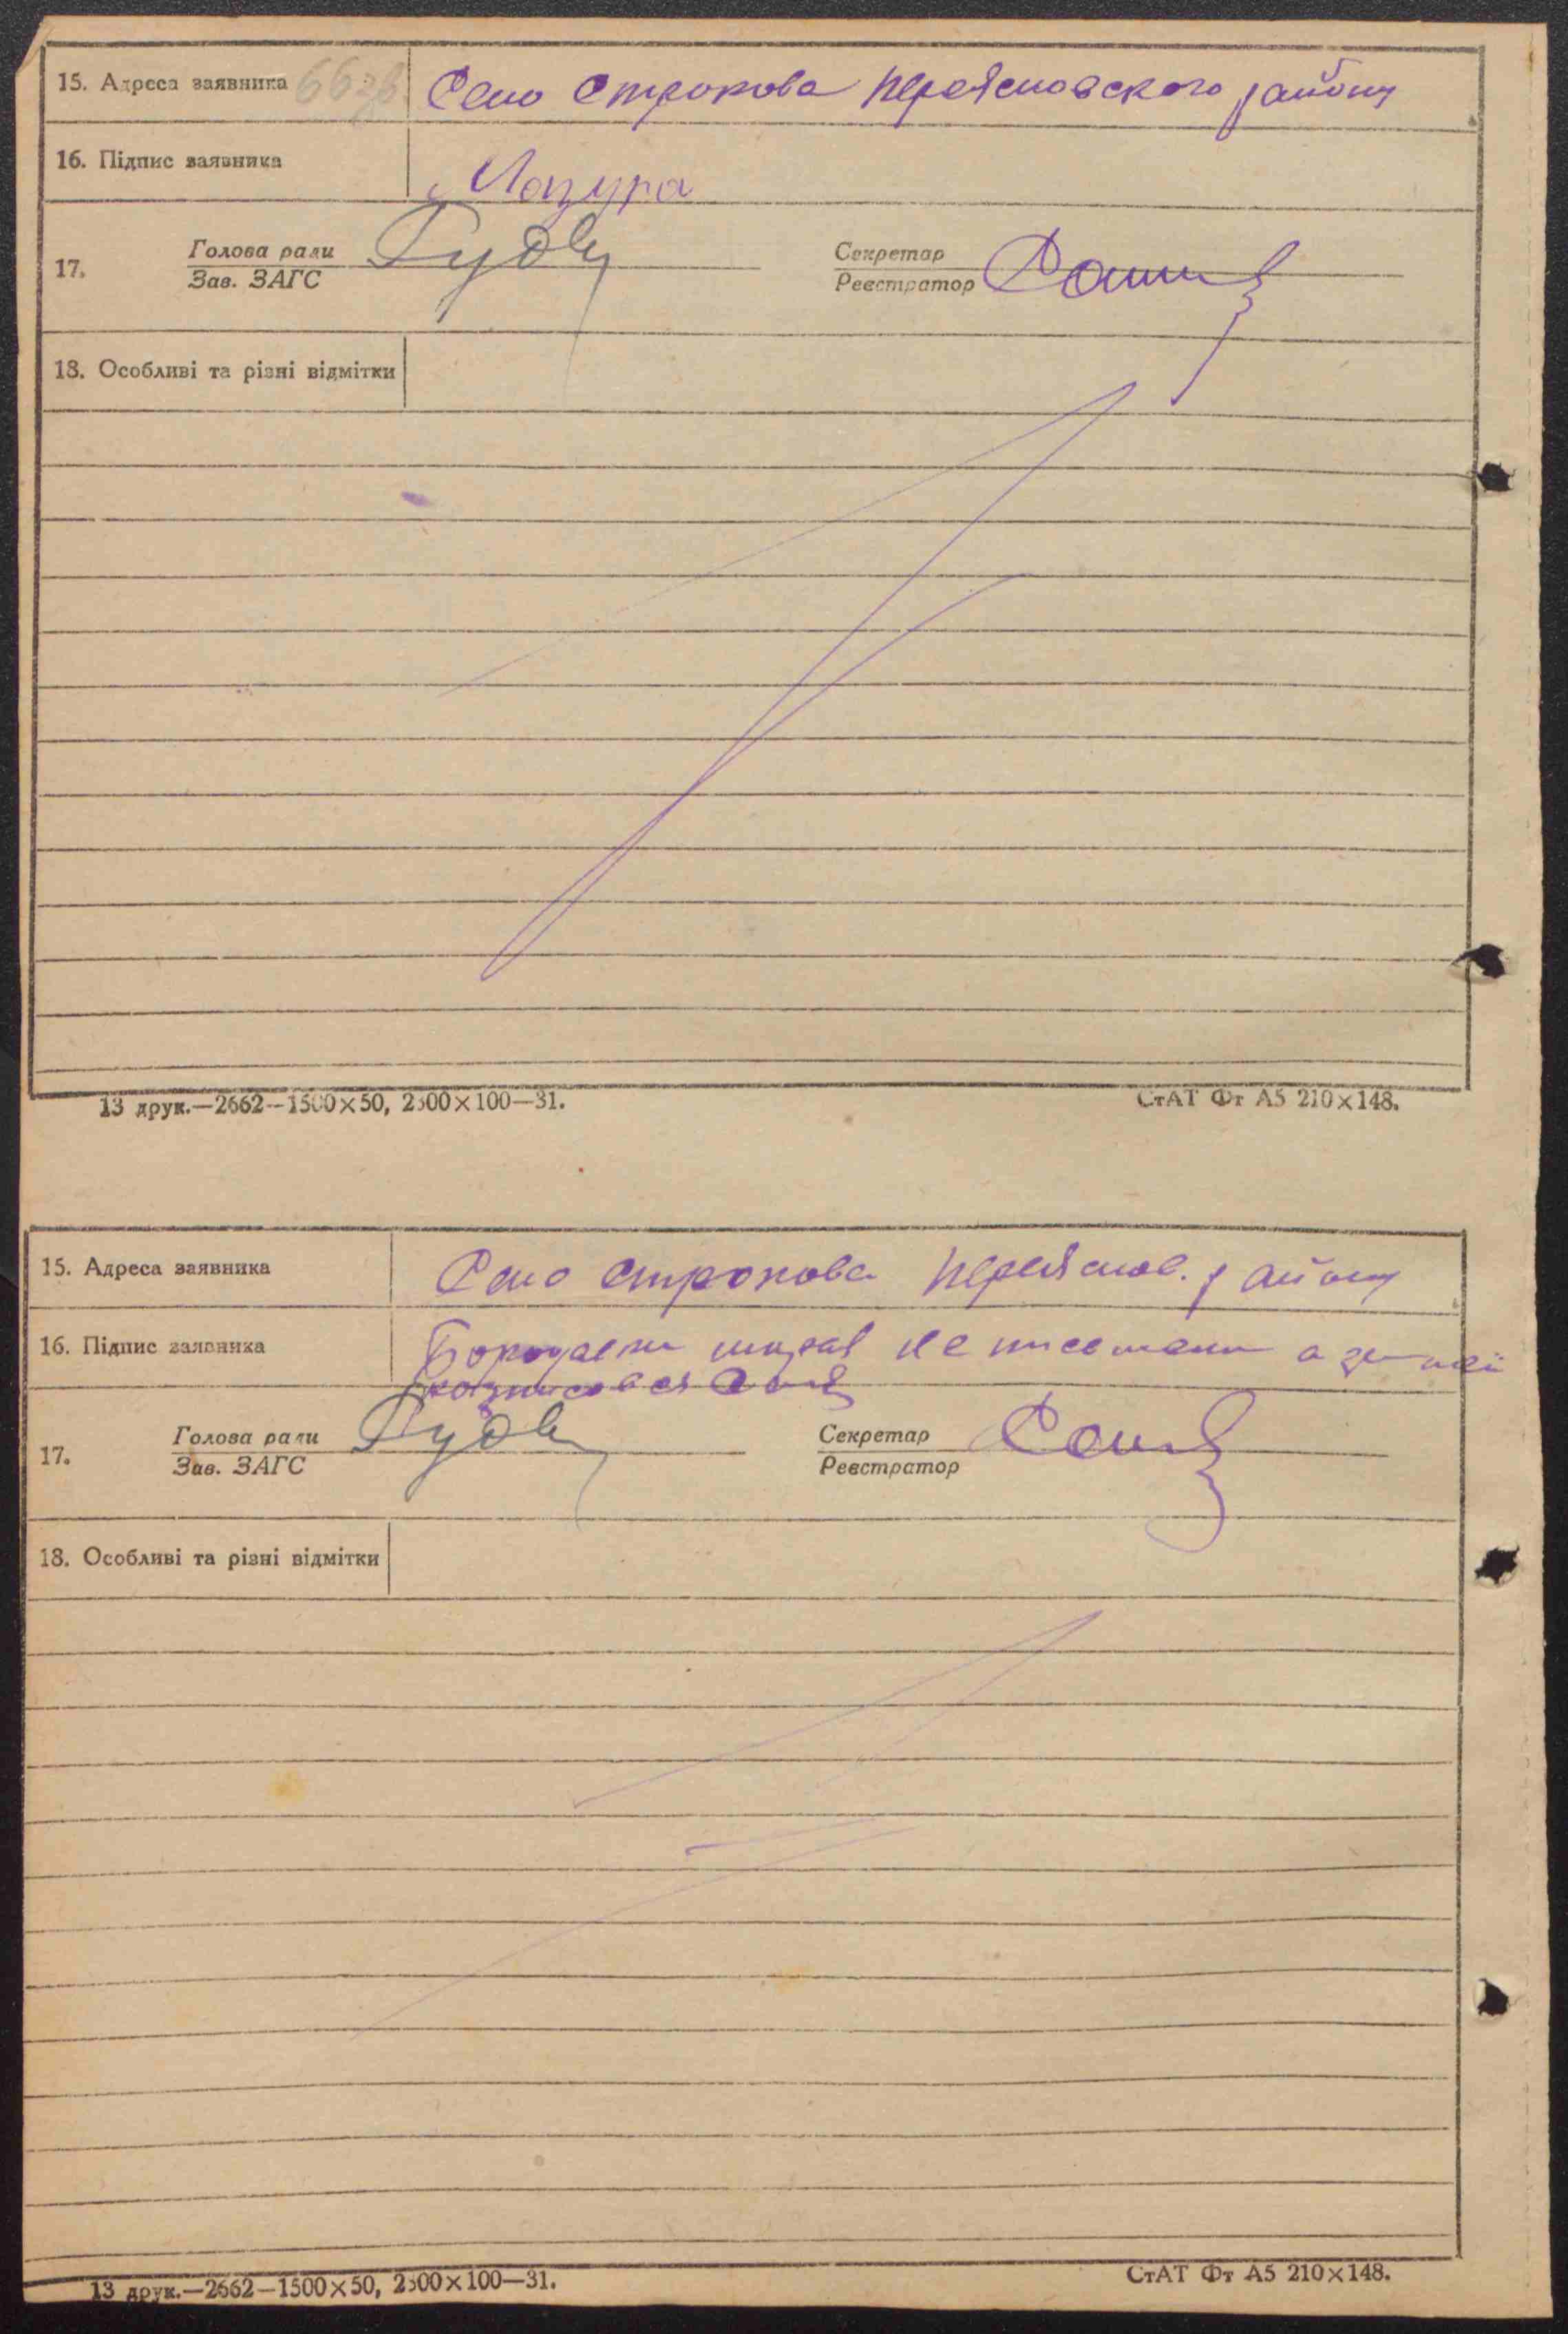 15. Адреса заявника 66зв Село Строкова Переяславского району
16. Підпис заявника Мазура
17. Голова ради Секретар
Зав. ЗАГС Реєстратор
18. Особливі та різні відмітки
13 друк.—2662—1500×50, 2300×100—31. СтАТ Фт А5 210×148.
15. Адреса заявника Село Строкова Переяслав. району
16. Підпис заявника не писемени а за неї
росписався
17. Голова ради Секретар
Зав. ЗАГС Реєстратор
18. Особливі та різні відмітки
13 друк.—2662—1500×50, 2300×100—31. СтАТ Фт А5 210×148.